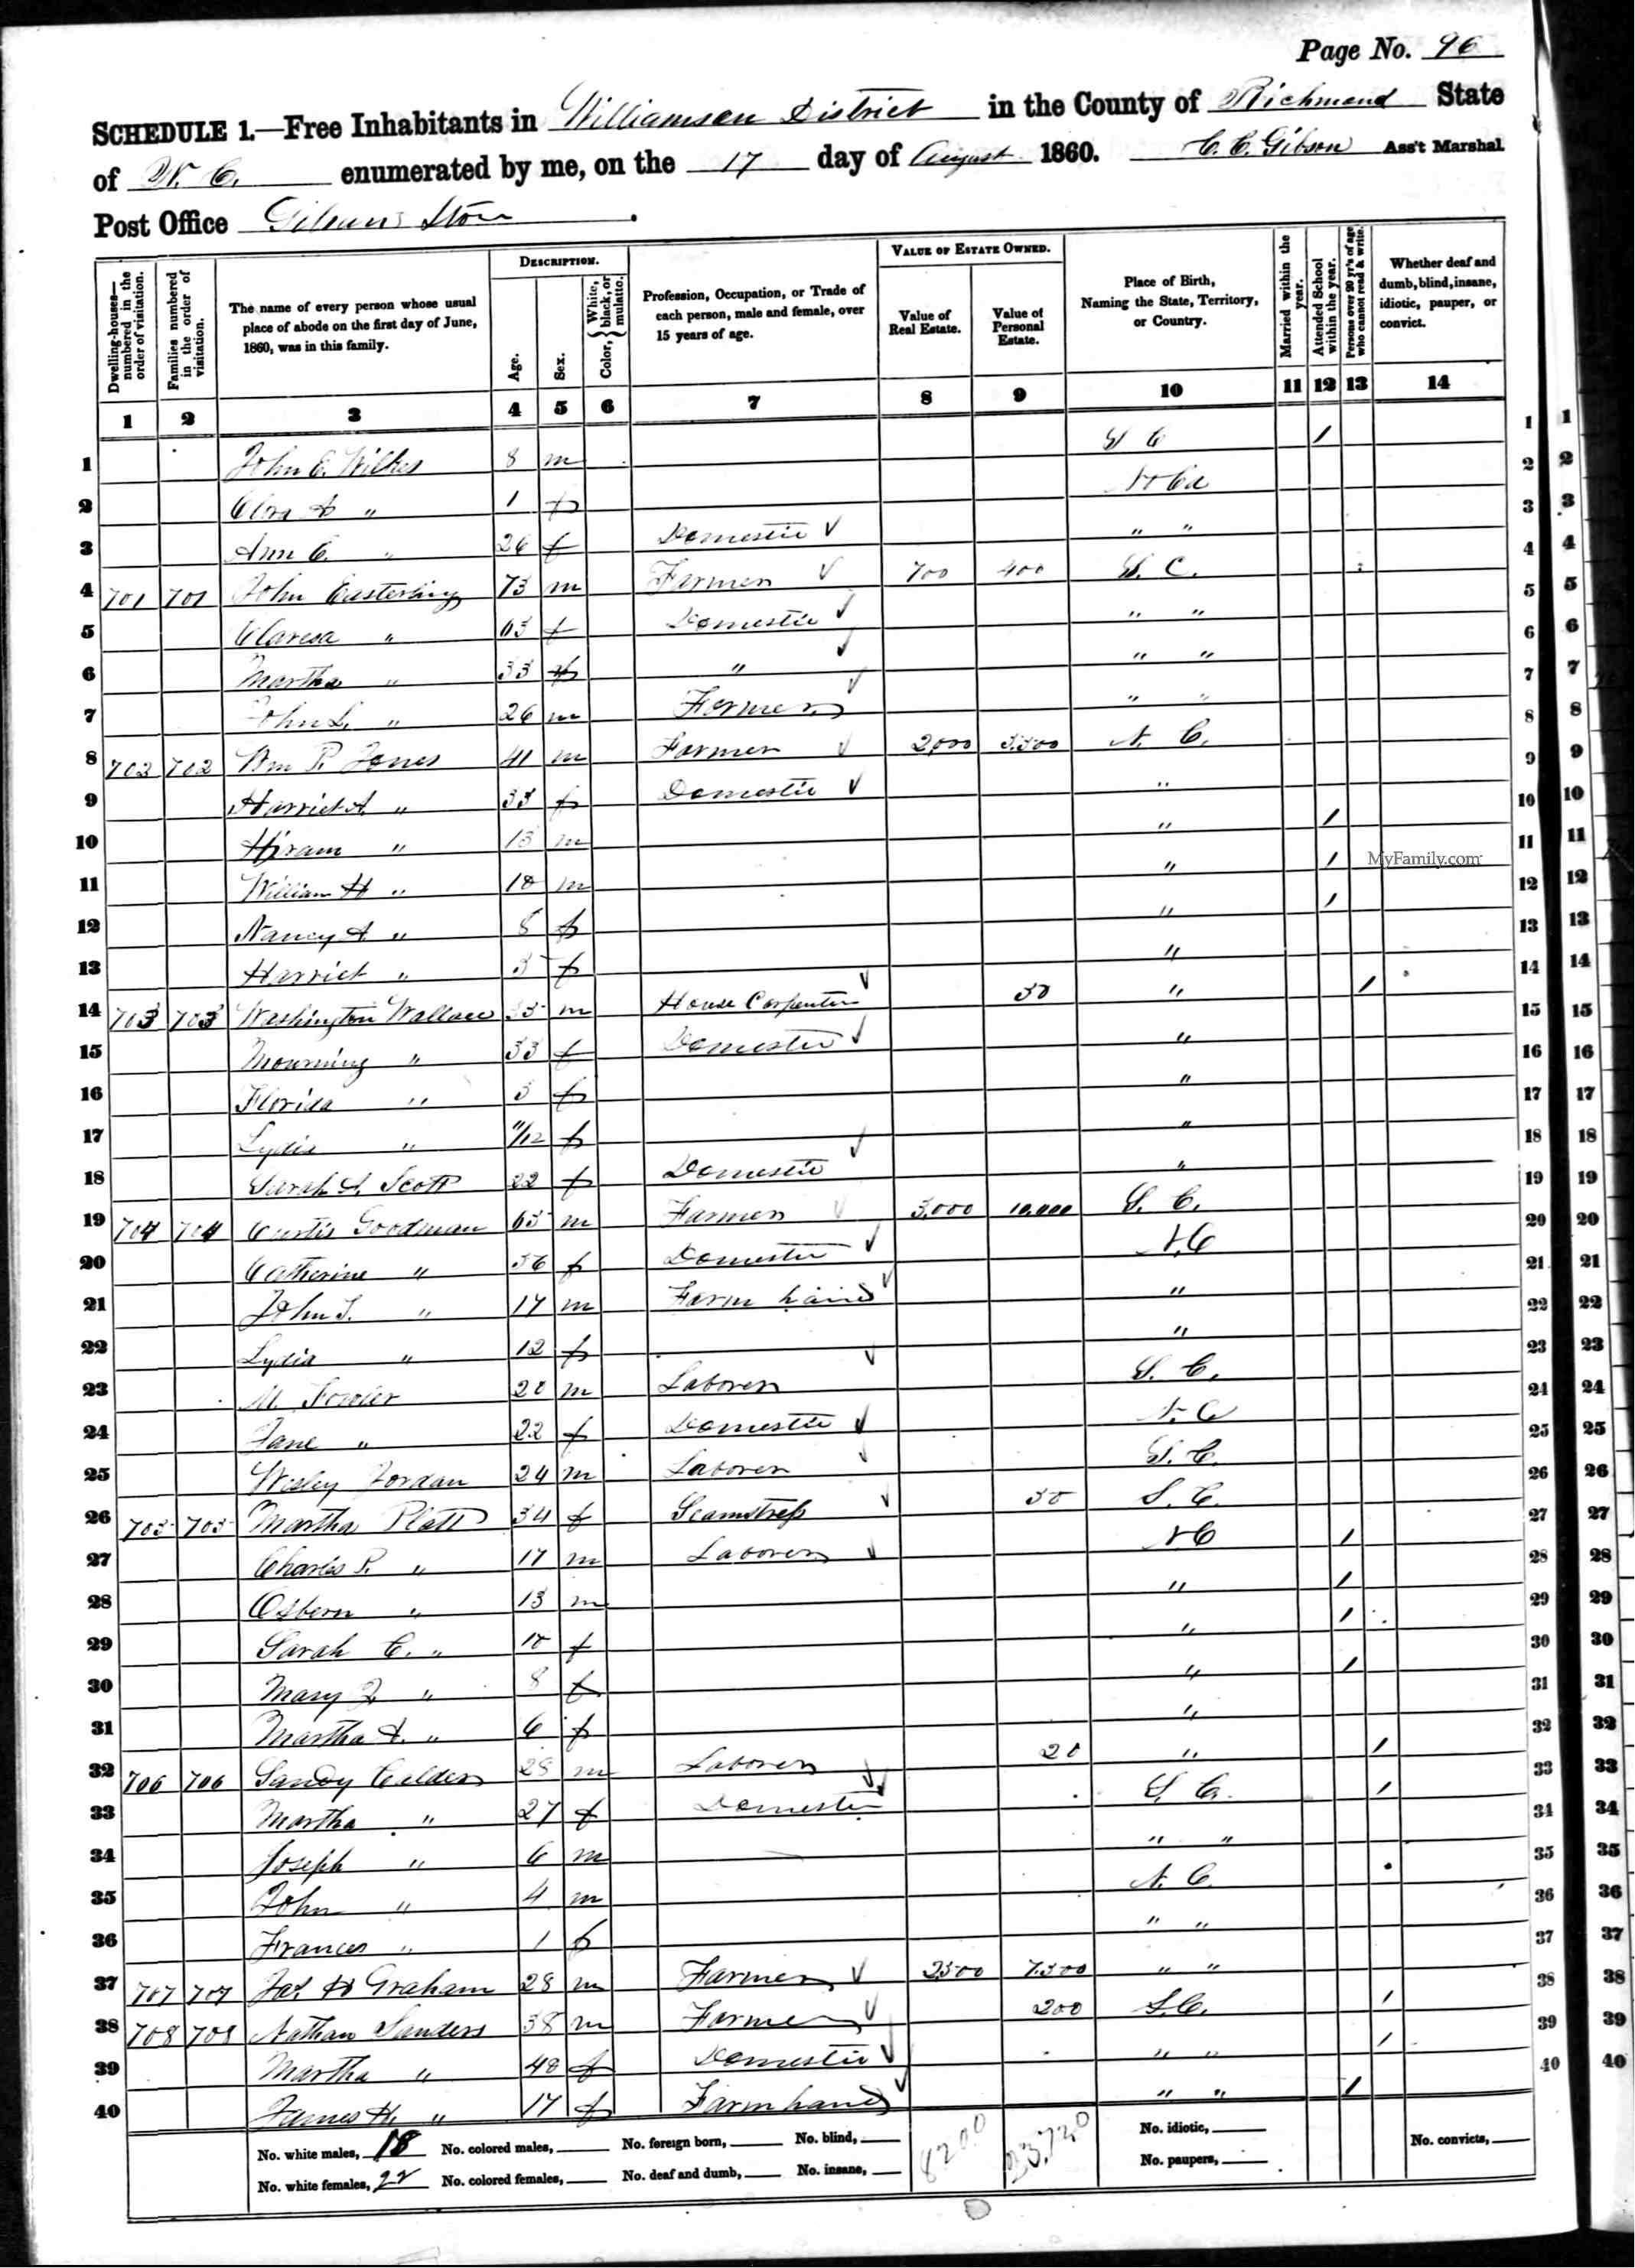 Page No. 96
SCHEDULE 1.—Free Inhabitants in Williamson District in the County of Richmond State
of N. C. enumerated by me, on the 17 day of August 1860. C. C. Gibson Ass't Marshal
Post Office Gibsons Store.
Dwelling-houses—numbered in the order of visitation.
Families numbered in the order of visitation.
The name of every person whose usual place of abode on the first day of June, 1860, was in this family.
DESCRIPTION.
Age.
Sex.
Color, White, black, or mulatto.
Profession, Occupation, or Trade of each person, male and female, over 15 years of age.
VALUE OF ESTATE OWNED.
Value of Real Estate.
Value of Personal Estate.
Place of Birth, Naming the State, Territory, or Country.
Married within the year.
Attended School within the year.
Persons over 20 yr's of age who cannot read & write.
Whether deaf and dumb, blind, insane, idiotic, pauper, or convict.
1 2 3 4 5 6 7 8 9 10 11 12 13 14
1 John E. Wilkes 8 m S C / 1 1
2 " 1 f N Ca 2 2
3 Ann C. " 26 f Domestic " " 3 3
4 701 701 John Easterling 73 m Farmer 700 400 S. C. 4 4
5 Claresa " 63 f Domestic " " 5 5
6 Martha " 33 f " " " 6 6
7 John L. " 26 m Farmer " " 7 7
8 702 702 Wm P. Jones 41 m Farmer 2,000 5,500 N. C. 8 8
9 Harriet A. " 33 f Domestic " 9 9
10 Hiram " 13 m " / 10 10
11 William H " 10 m " / 11 11
12 Nancy A. " 8 f " / 12 12
13 Harriet " f " 13 13
14 703 703 Washington Wallace 35 m House Carpenter 50 " / 14 14
15 Mourning " 33 f Domestic " 15 15
16 Florida " f " 16 16
17 Lydia " 11/12 f " 17 17
18 Sarah A. Scott 22 f Domestic " 18 18
19 704 704 Curtis Goodman 65 m Farmer 3,000 10,000 S. C. 19 19
20 Catherine " 56 f Domestic N. C 20 20
21 John T. " 17 m Farm hand " 21 21
22 Lydia " 12 f " 22 22
23 M. Fowler 20 m Laborer S. C. 23 23
24 Jane " 22 f Domestic N. C 24 24
25 Wesley Jordan 24 m Laborer S. C. 25 25
26 705 705 Martha Platt 34 f Seamstress 50 S. C. 26 26
27 Charles P. " 17 m Laborer N C / 27 27
28 Osborn " 13 m " / 28 28
29 Sarah C. " 10 f " / 29 29
30 Mary J. " 8 f " / 30 30
31 Martha A. " 6 f " 31 31
32 706 706 Sandy Calder 28 m Laborer 20 " / 32 32
33 Martha " 27 f Domestic S. C. / 33 33
34 Joseph " 6 m " " 34 34
35 John " 4 m N. C. 35 35
36 Frances " 1 f " " 36 36
37 707 707 Jas. H Graham 28 m Farmer 2500 7,500 " " 37 37
38 708 708 Nathan Sanders 38 m Farmer 200 S. C. / 38 38
39 Martha " 40 f Domestic " " / 39 39
40 James H. " 17 f Farm hand " " / 40 40
No. white males, 18 No. colored males, No. foreign born, No. blind, 8200 No. idiotic, No. convicts,
No. white females, 22 No. colored females, No. deaf and dumb, No. insane, No. paupers,
MyFamily.com